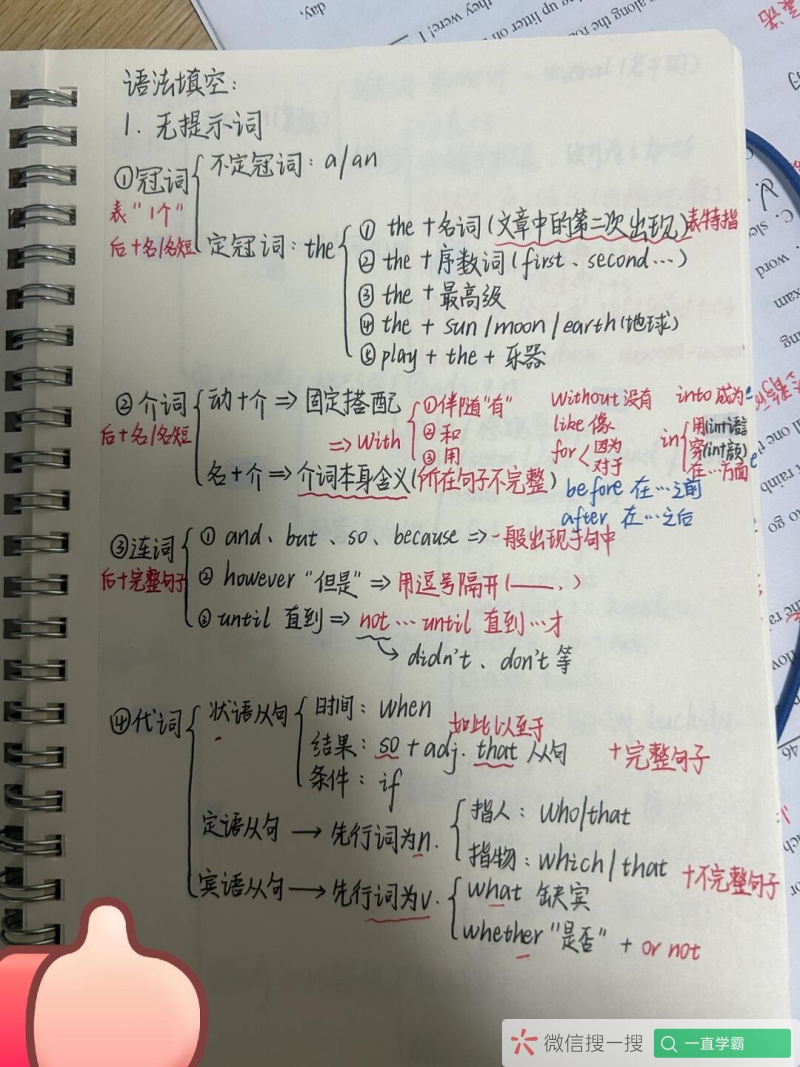 语法填空:
1. 无提示词
①冠词
表“1个”
后+名/名短
不定冠词: a/an
定冠词: the
① the +名词(文章中的第二次出现)表特指
② the +序数词(first、second…)
③ the +最高级
④ the + sun/moon/earth(地球)
⑤ play + the + 乐器
②介词
后+名/名短
动+介⇒固定搭配
⇒with
①伴随“有”
②和
③用
without 没有
into 成为
like 像
for
因为
对于
in
用(int语言
穿(int颜)
在…方面
名+介⇒介词本身含义(所在句子不完整)
before 在…之前
after 在…之后
③连词
后+完整句子
① and、but、so、because ⇒一般出现于句中
② however “但是”⇒用逗号隔开(——,)
③ until 直到⇒not…until 直到…才
→didn't、don't 等
④代词
状语从句
时间: when
结果: so + adj. that 从句
如此以至于
条件: if
+完整句子
定语从句→先行词为n.
指人: who/that
指物: which/that
宾语从句→先行词为v.
what 缺宾
whether “是否” + or not
+不完整句子
微信搜一搜
一直学霸